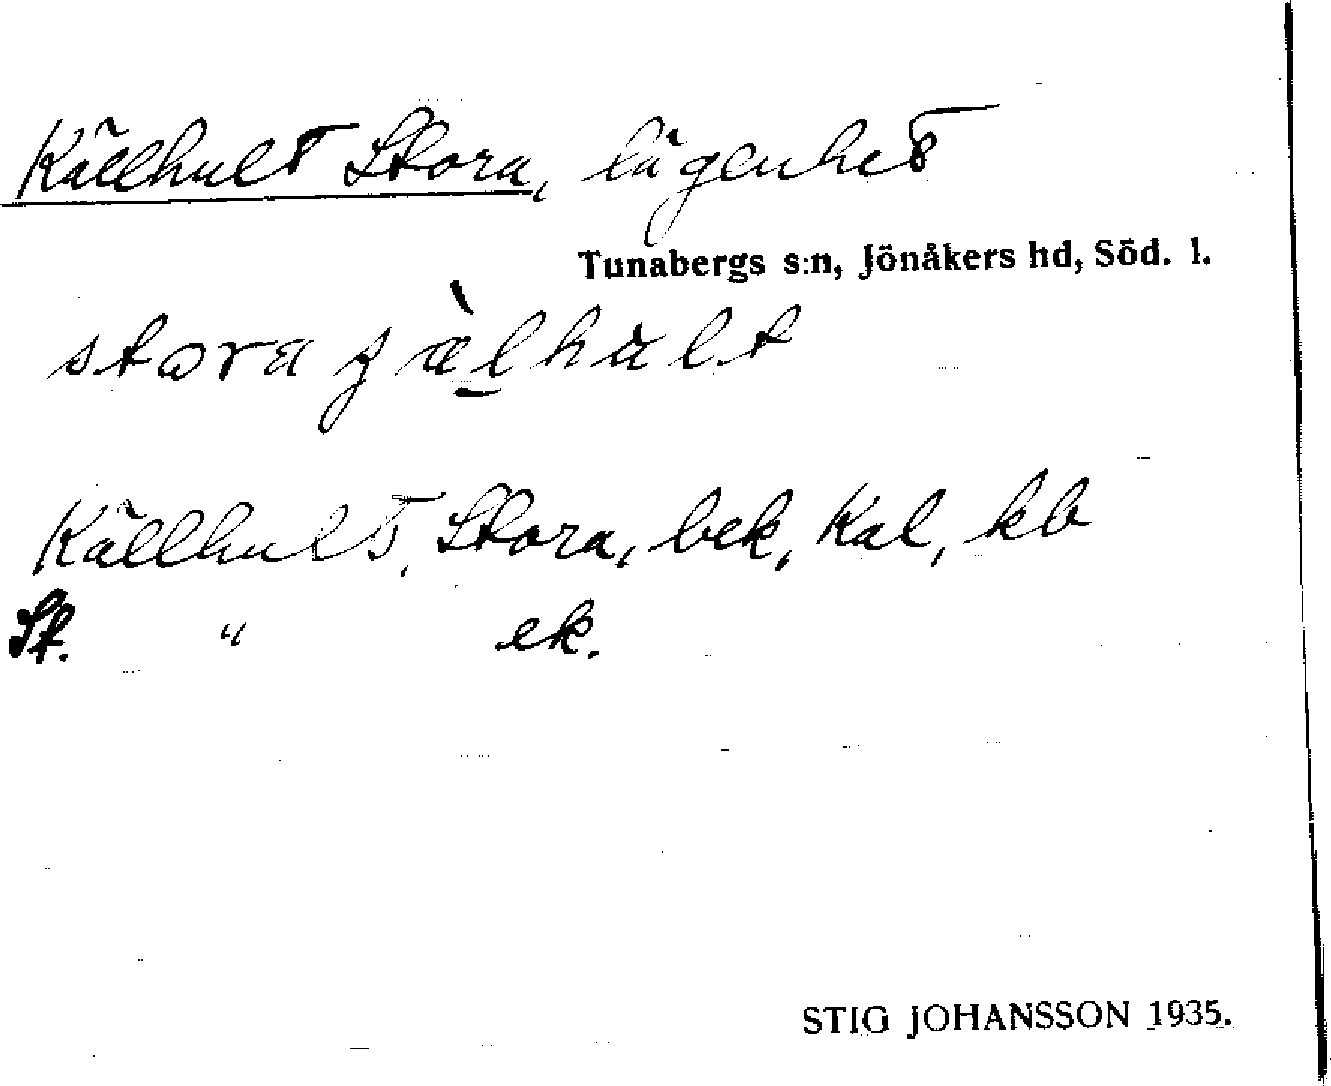 Källhult Stora, lägenhet
Tunabergs s:n, Jönåkers hd, Söd. l.
stora ʝæ̀lhult
Källhult, Stora, bek, Kal, kb
St. " ek.
STIG JOHANSSON 1935.